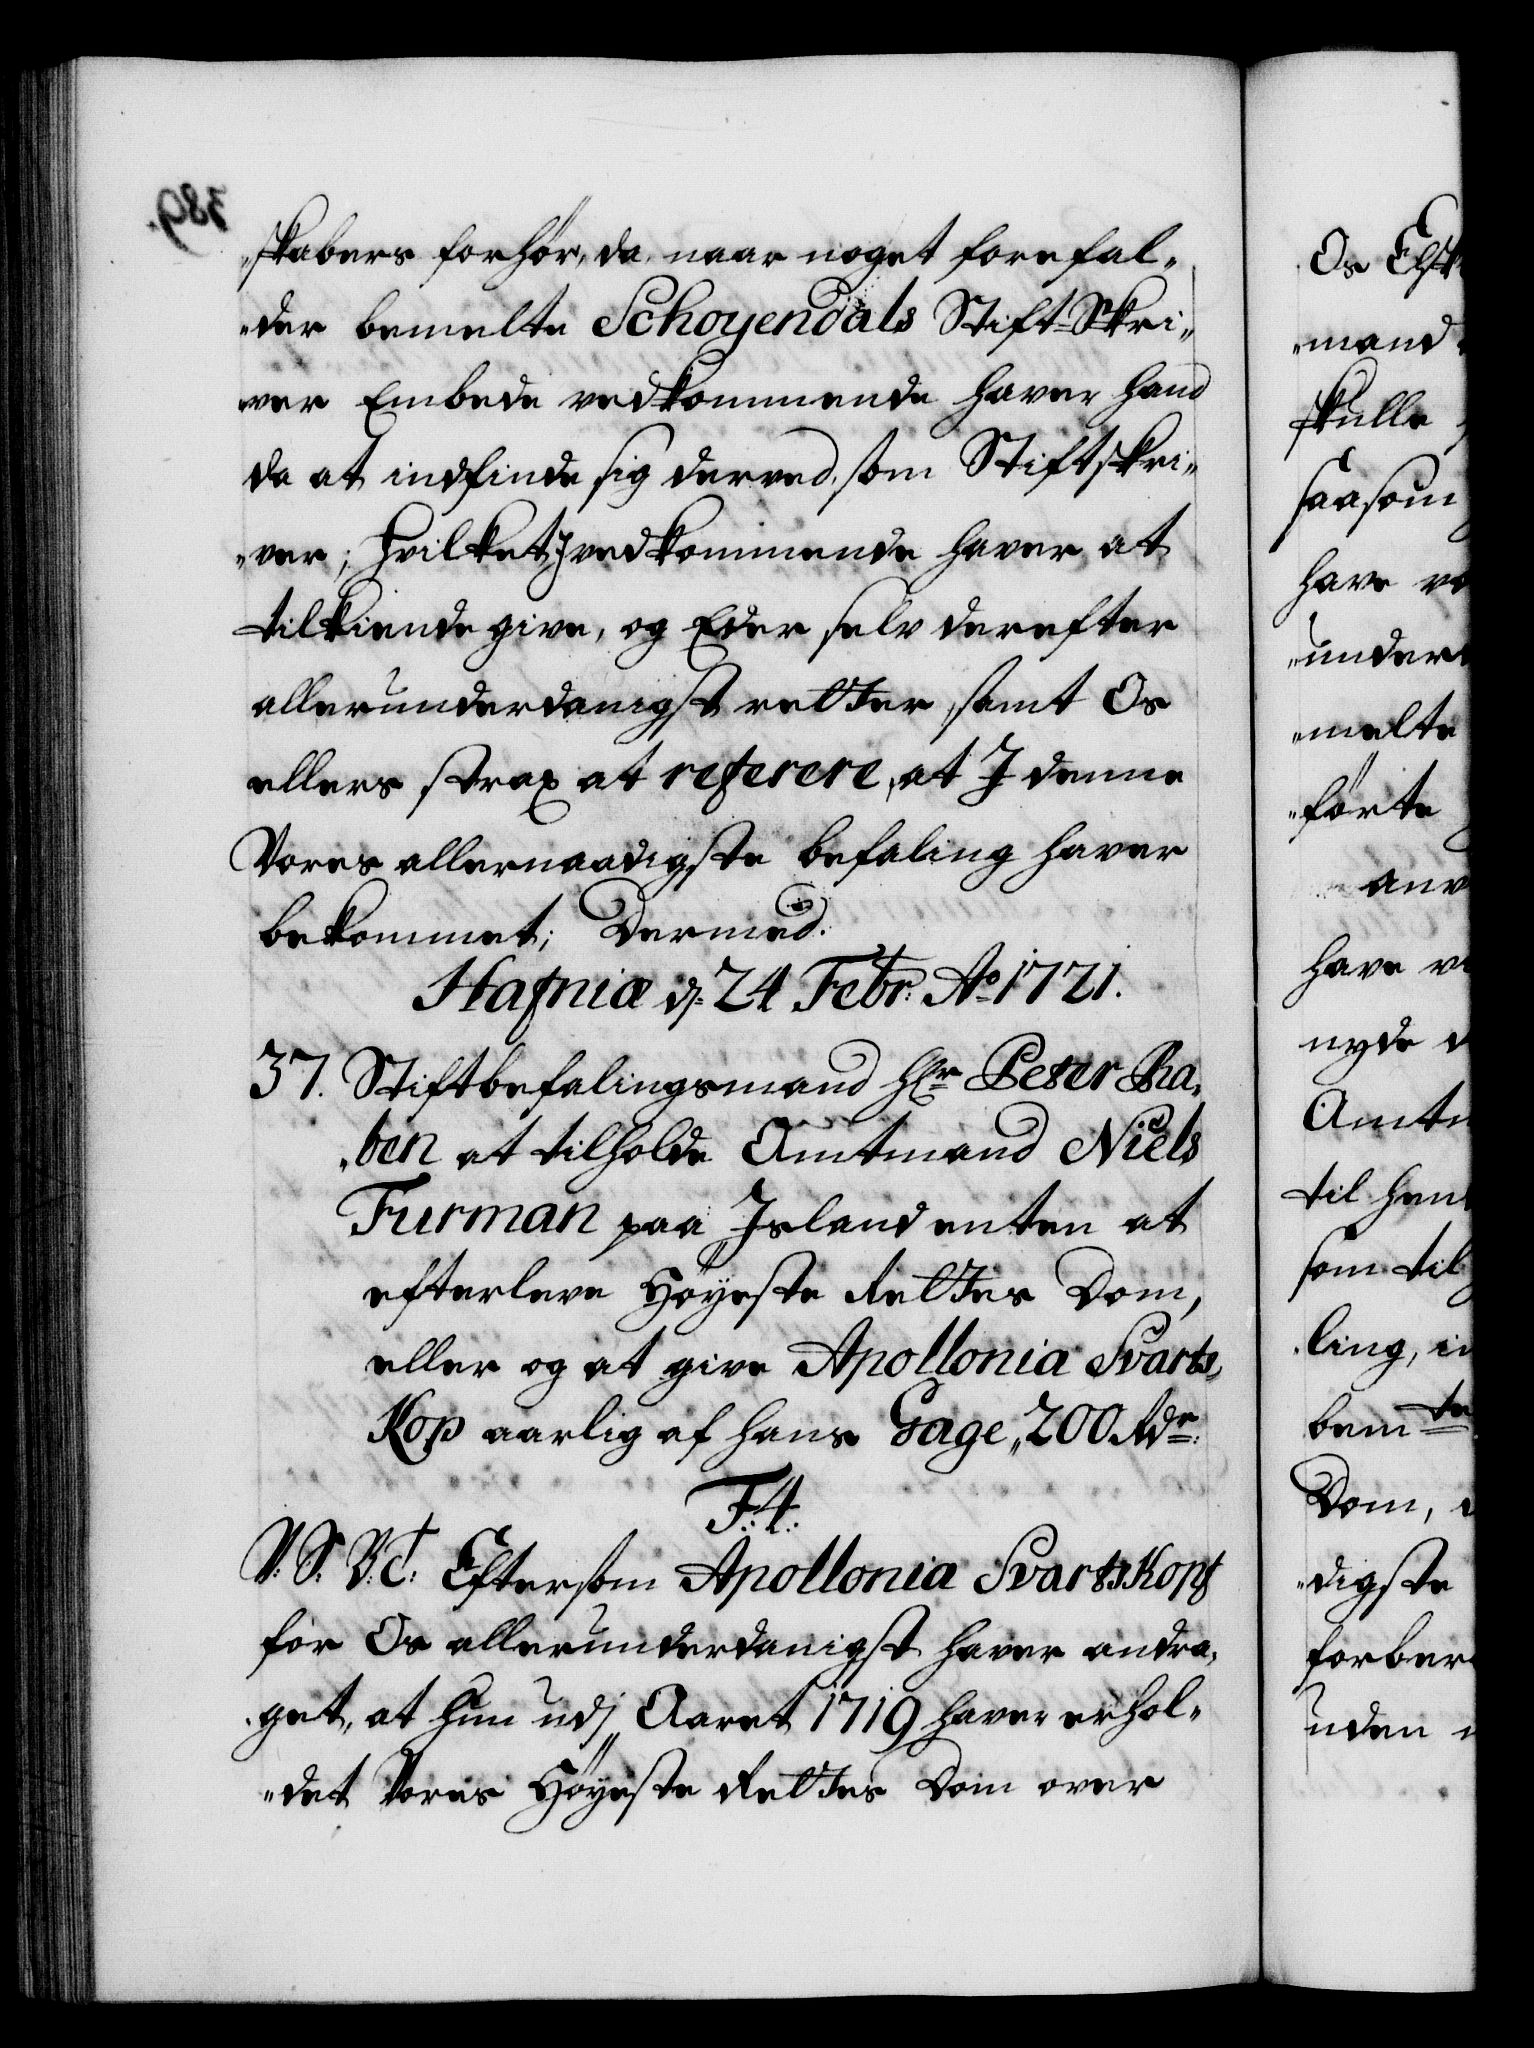 389.
„skabers forhör, da, naar noget forefal„
„der bemelte Schoyendals Stift-Skri„
„ver Embede vedkommende haver hand
da at indfinde sig derved, som Stiftskri„
„ver; hvilket I vedkommende haver at
tilkiende give, og Eder selv derefter
allerunderdanigst retter, samt Os
ellers strax at referere, at I denne
Vores allernaadigste befaling haver
bekommet; Dermed.
Hafniæ d: 24 Febr: Ao 1721.
37. Stiftbefalingsmand Hr Peter Ra„
„ben at tilholde Amtmand Niels
Furman paa Island enten at
efterleve Höyeste Rettes Dom,
eller og at give Apollonia Svarts„
Kop aarlig af hans Gage, 200 Rdr:
F:4:
V: S: V: C: Eftersom Apollonia SvartsKopf
for Os allerunderdanigst haver andra„
„get, at hun udj Aaret 1719 haver erhol„
„det Vores Höyeste Rettes Dom over
Os Elsk
„mand
skulle
saasom
have
„under
„melte
„förte
anv
have
nyde
Amtm
til
som til
„ling,
bemte
Dom,
„digste
forber
uden